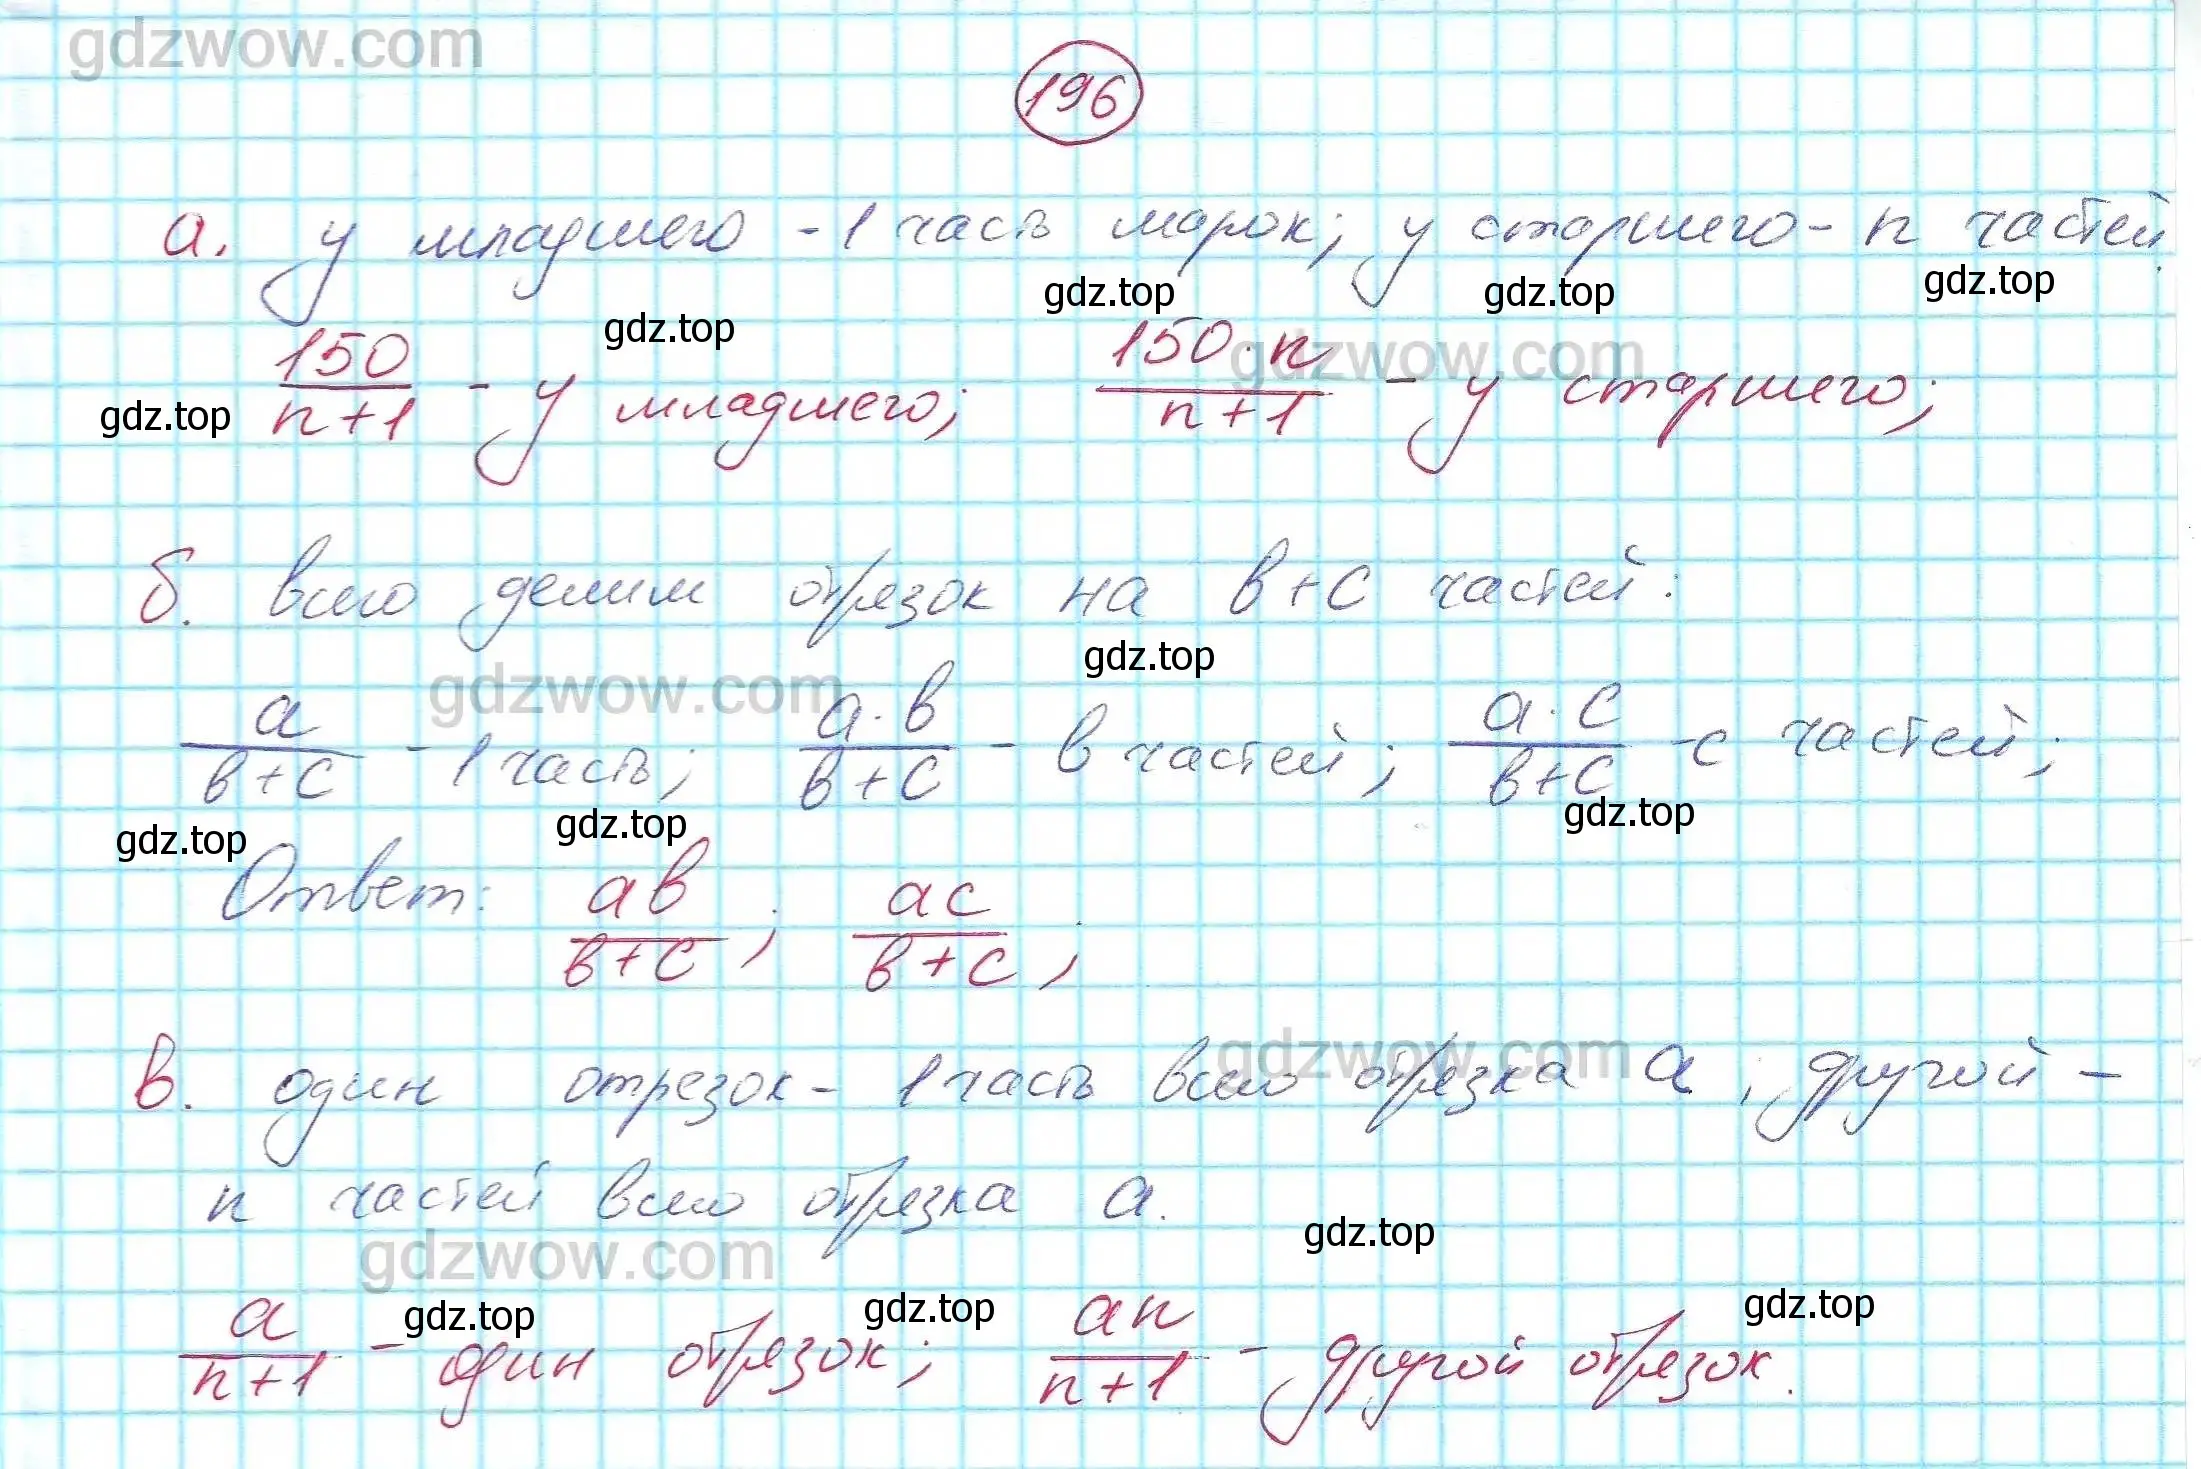 gdzwow.com
196
а. у младшего - 1 часть марок; у старшего - n частей.
gdz.top gdz.top gdz.top gdz.top
150/(n+1) - у младшего; 150·n/(n+1) - у старшего;
gdz.top gdzwow.com
б. всего делим отрезок на в+с частей:
gdz.top
gdzwow.com
а/(в+с) - 1 часть; а·в/(в+с) - в частей; а·с/(в+с) - с частей;
gdz.top gdz.top gdz.top
Ответ: ав/(в+с); ас/(в+с);
в. один отрезок - 1 часть всего отрезка а, другой -
gdzwow.com
n частей всего отрезка а.
gdzwow.com gdz.top
а/(n+1) - один отрезок; аn/(n+1) - другой отрезок.
gdz.top gdz.top gdz.top